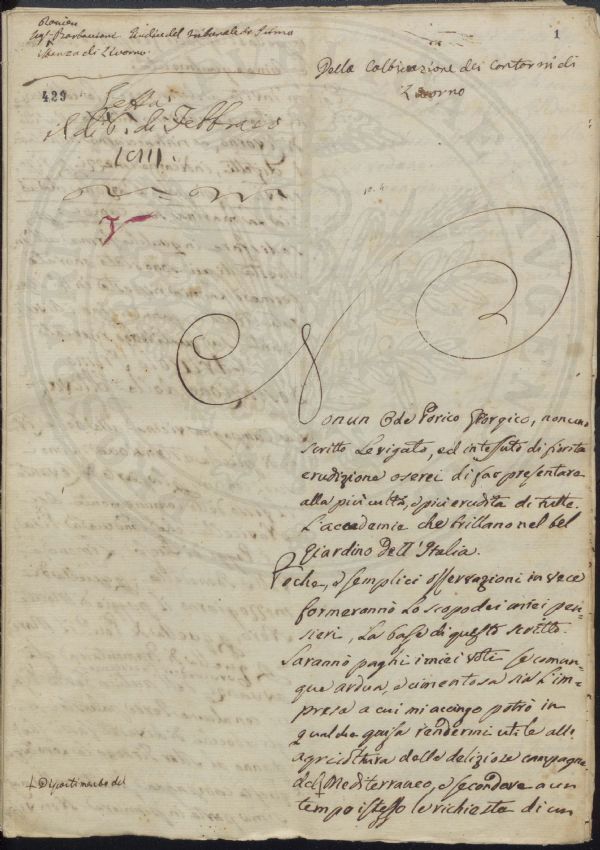 Sig.r Barbantani Giudice del Tribunale di Prima
istanza di Livorno.
1
Della Coltivazione dei Contorni di
Livorno
429
Letta
il dì 6. di Febbraio
N
on un Ode Lirico Georgico, non uno
scritto levigato, ed intessuto di fiorita
erudizione oserei di far presentare
alla più culta, e più erudita di tutte
L'accademie che brillano nel bel
Giardino dell'Italia.
Poche, e semplici osservazioni in vece
formeranno lo scopo dei miei pen=
sieri, la base di questo scritto.
Saranno paghi i miei voti se comun=
que ardua, e cimentosa sia l'im=
presa a cui mi accingo potrò in
qualche guisa rendermi utile alla
agricoltura delle deliziose campagne
del † Mediterraneo, e secondare a un
tempo istesso le richieste di un
† Dipartimento del